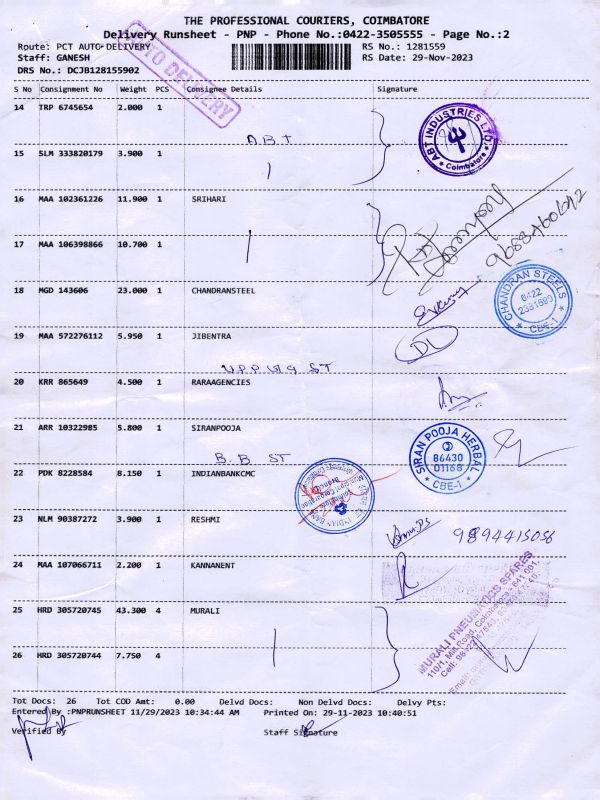 THE PROFESSIONAL COURIERS, COIMBATORE
Delivery Runsheet - PNP - Phone No.:0422-3505555 - Page No.:2
Route: PCT AUTO DELIVERY RS No.: 1281559
Staff: GANESH RS Date: 29-Nov-2023
DRS No.: DCJB128155902
AUTO DELIVERY
S No Consignment No Weight PCS Consignee Details Signature
14 TRP 6745654 2.000 1
A.B.T
ABT INDUSTRIES LTD. Coimbatore
15 SLM 333820179 3.900 1
16 MAA 102361226 11.900 1 SRIHARI
17 MAA 106398866 10.700 1
18 MGD 143606 23.000 1 CHANDRANSTEEL
CHANDRAN STEELS 0422 CBE-1
19 MAA 572276112 5.950 1 JIBENTRA
ST
20 KRR 865649 4.500 1 RARAAGENCIES
21 ARR 10322985 5.800 1 SIRANPOOJA
SIRAN POOJA HERBAL 86430 01168 CBE-1
B.B ST
22 PDK 8228584 8.150 1 INDIANBANKCMC
23 NLM 90387272 3.900 1 RESHMI
9894415056
24 MAA 107066711 2.200 1 KANNANENT
25 HRD 305720745 43.300 4 MURALI
MURALI PNEUMATICS SPARES
110/1, Mill Road, Coimbatore - 641 001.
26 HRD 305720744 7.750 4
Tot Docs: 26 Tot COD Amt: 0.00 Delvd Docs: Non Delvd Docs: Delvy Pts:
Entered By :PNPRUNSHEET 11/29/2023 10:34:44 AM Printed On: 29-11-2023 10:40:51
Verified By Staff Signature